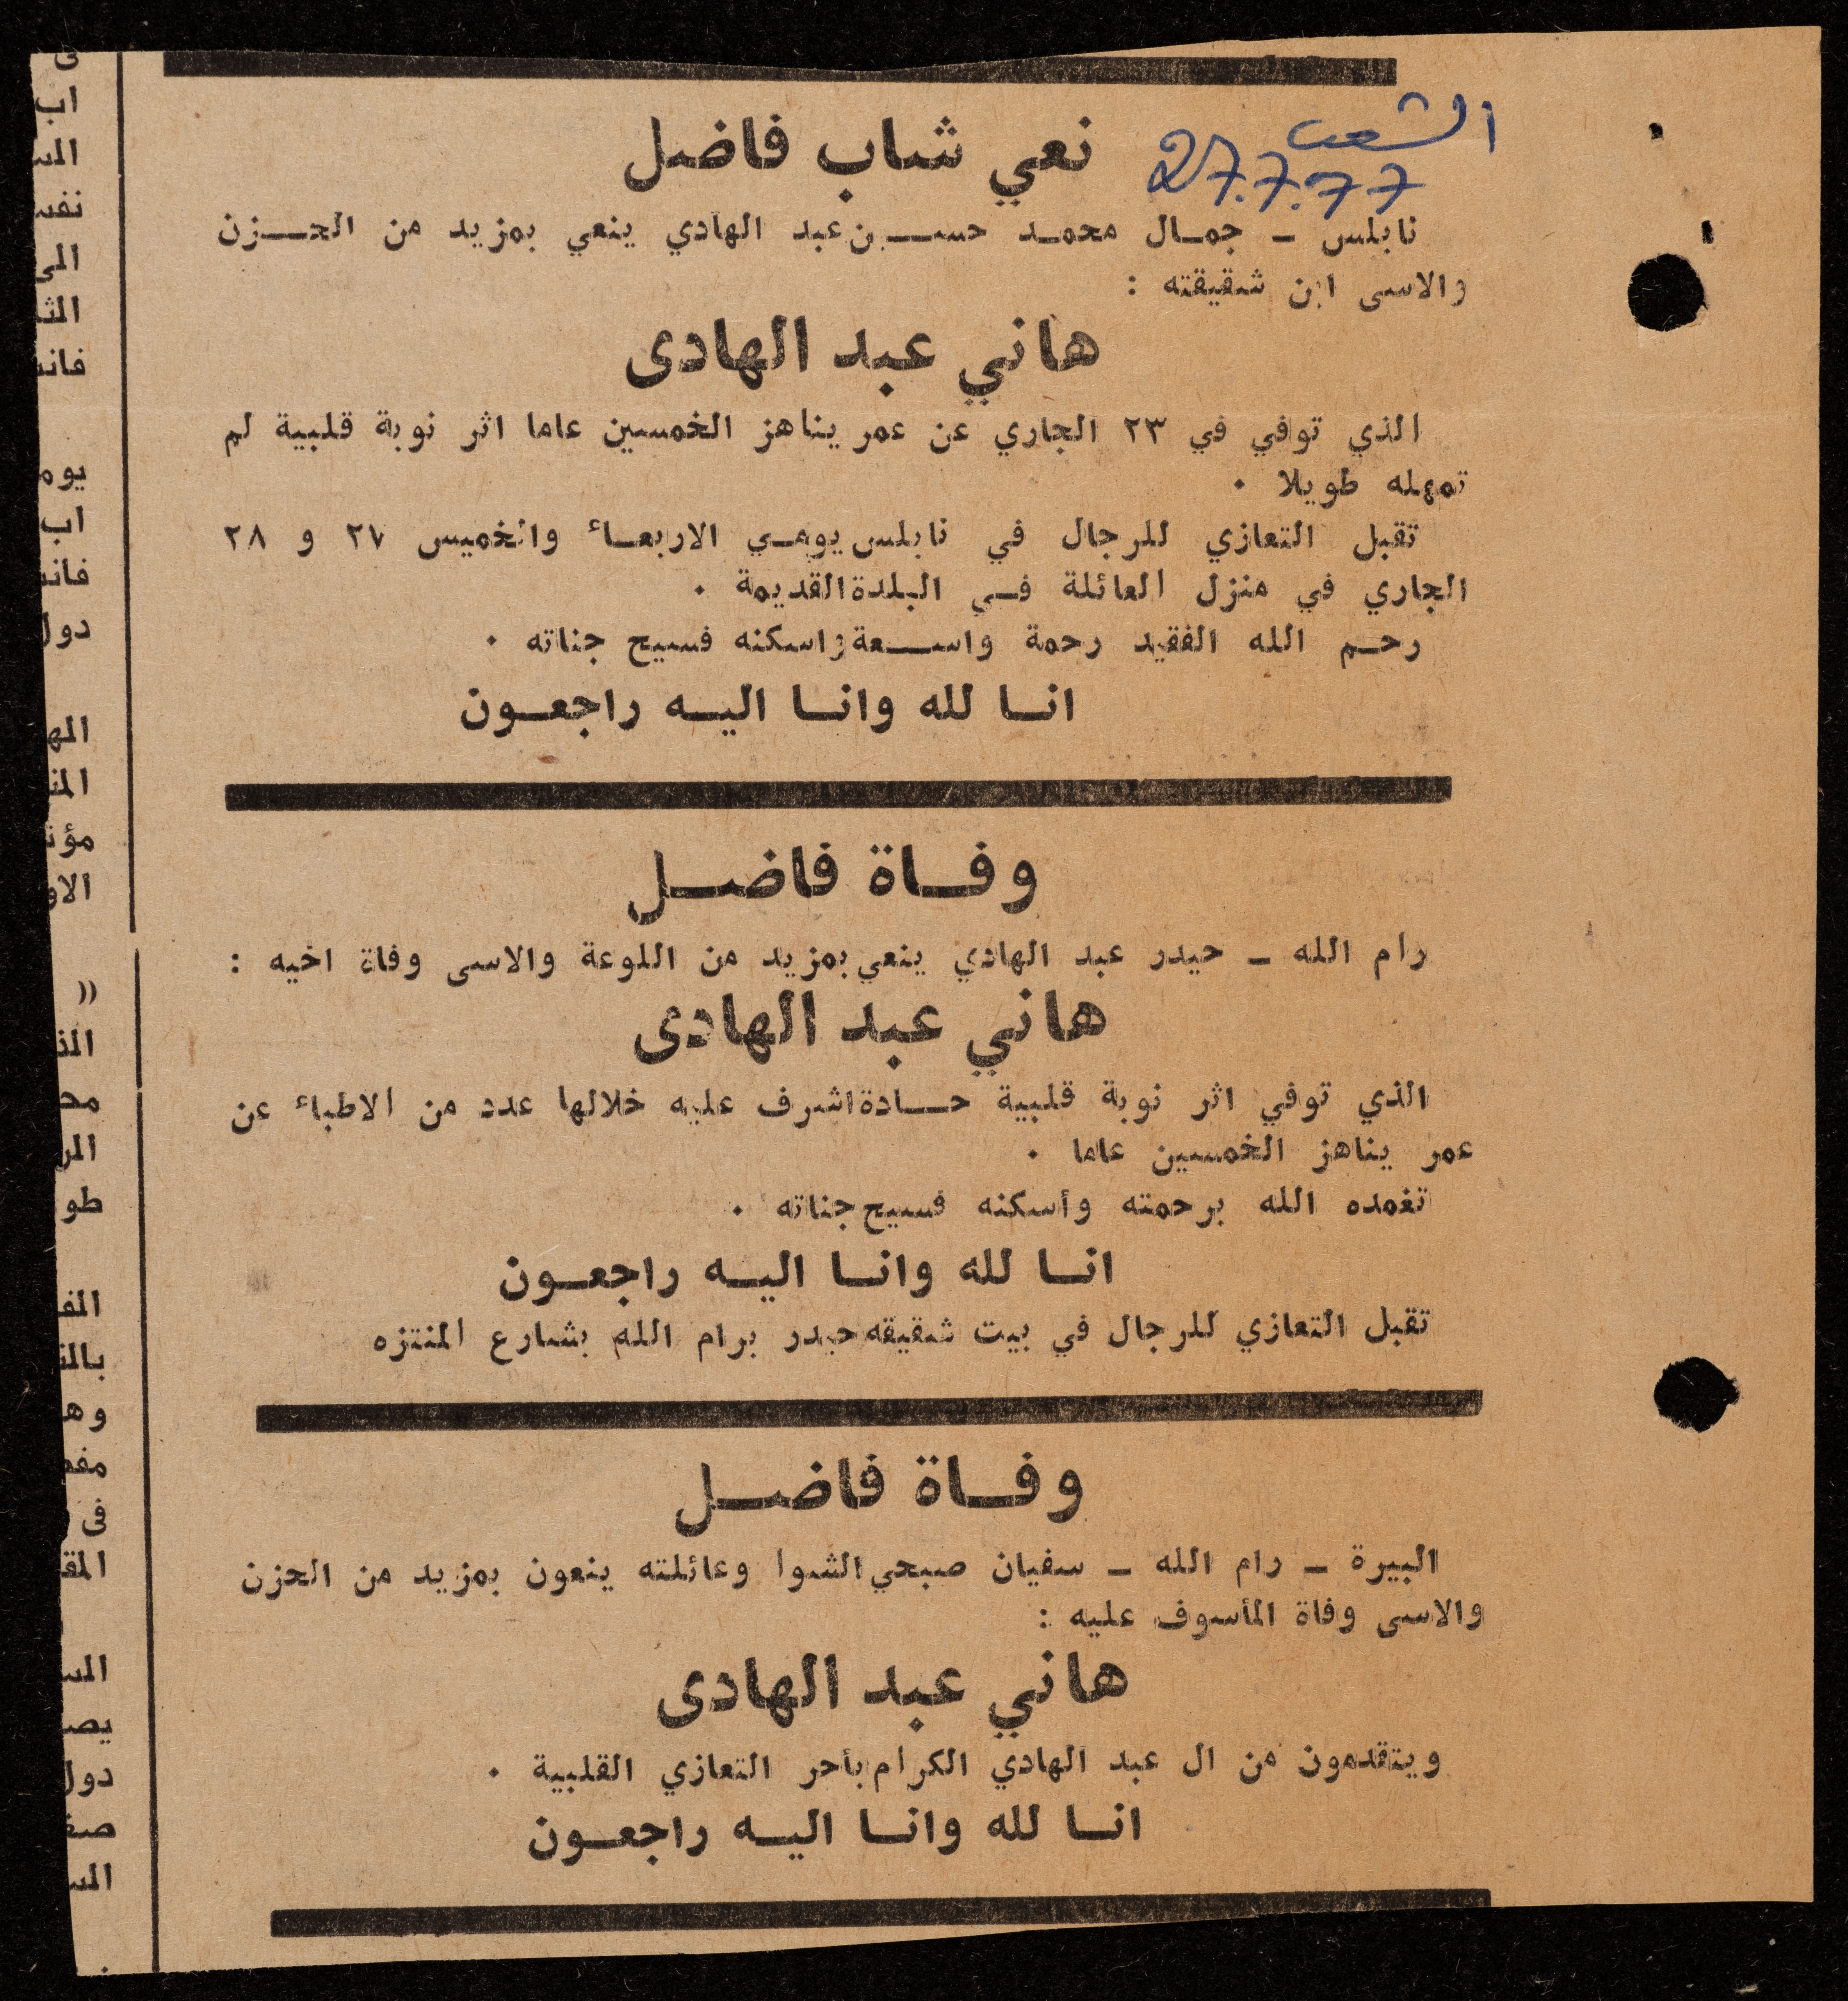 الشعب
27.7.77
نعي شاب فاضل
نابلس – جمال محمد حسن عبد الهادي ينعي بمزيد من الحزن
والاسى ابن شقيقته :
هاني عبد الهادى
الذي توفي في ٢٣ الجاري عن عمر يناهز الخمسين عاما اثر نوبة قلبية لم
تمهله طويلا ٠
تقبل التعازي للرجال في نابلس يومي الاربعاء والخميس ٢٧ و ٢٨
الجاري في منزل العائلة في البلدة القديمة ٠
رحم الله الفقيد رحمة واسعة واسكنه فسيح جناته ٠
انا لله وانا اليه راجعون
وفاة فاضل
رام الله – حيدر عبد الهادي ينعي بمزيد من اللوعة والاسى وفاة اخيه :
هاني عبد الهادى
الذي توفي اثر نوبة قلبية حادة اشرف عليه خلالها عدد من الاطباء عن
عمر يناهز الخمسين عاما ٠
تغمده الله برحمته وأسكنه فسيح جناته ٠
انا لله وانا اليه راجعون
تقبل التعازي للرجال في بيت شقيقه حيدر برام الله بشارع المنتزه
وفاة فاضل
البيرة – رام الله – سفيان صبحي الشوا وعائلته ينعون بمزيد من الحزن
والاسى وفاة المأسوف عليه :
هاني عبد الهادى
ويتقدمون من ال عبد الهادي الكرام بأحر التعازي القلبية ٠
انا لله وانا اليه راجعون